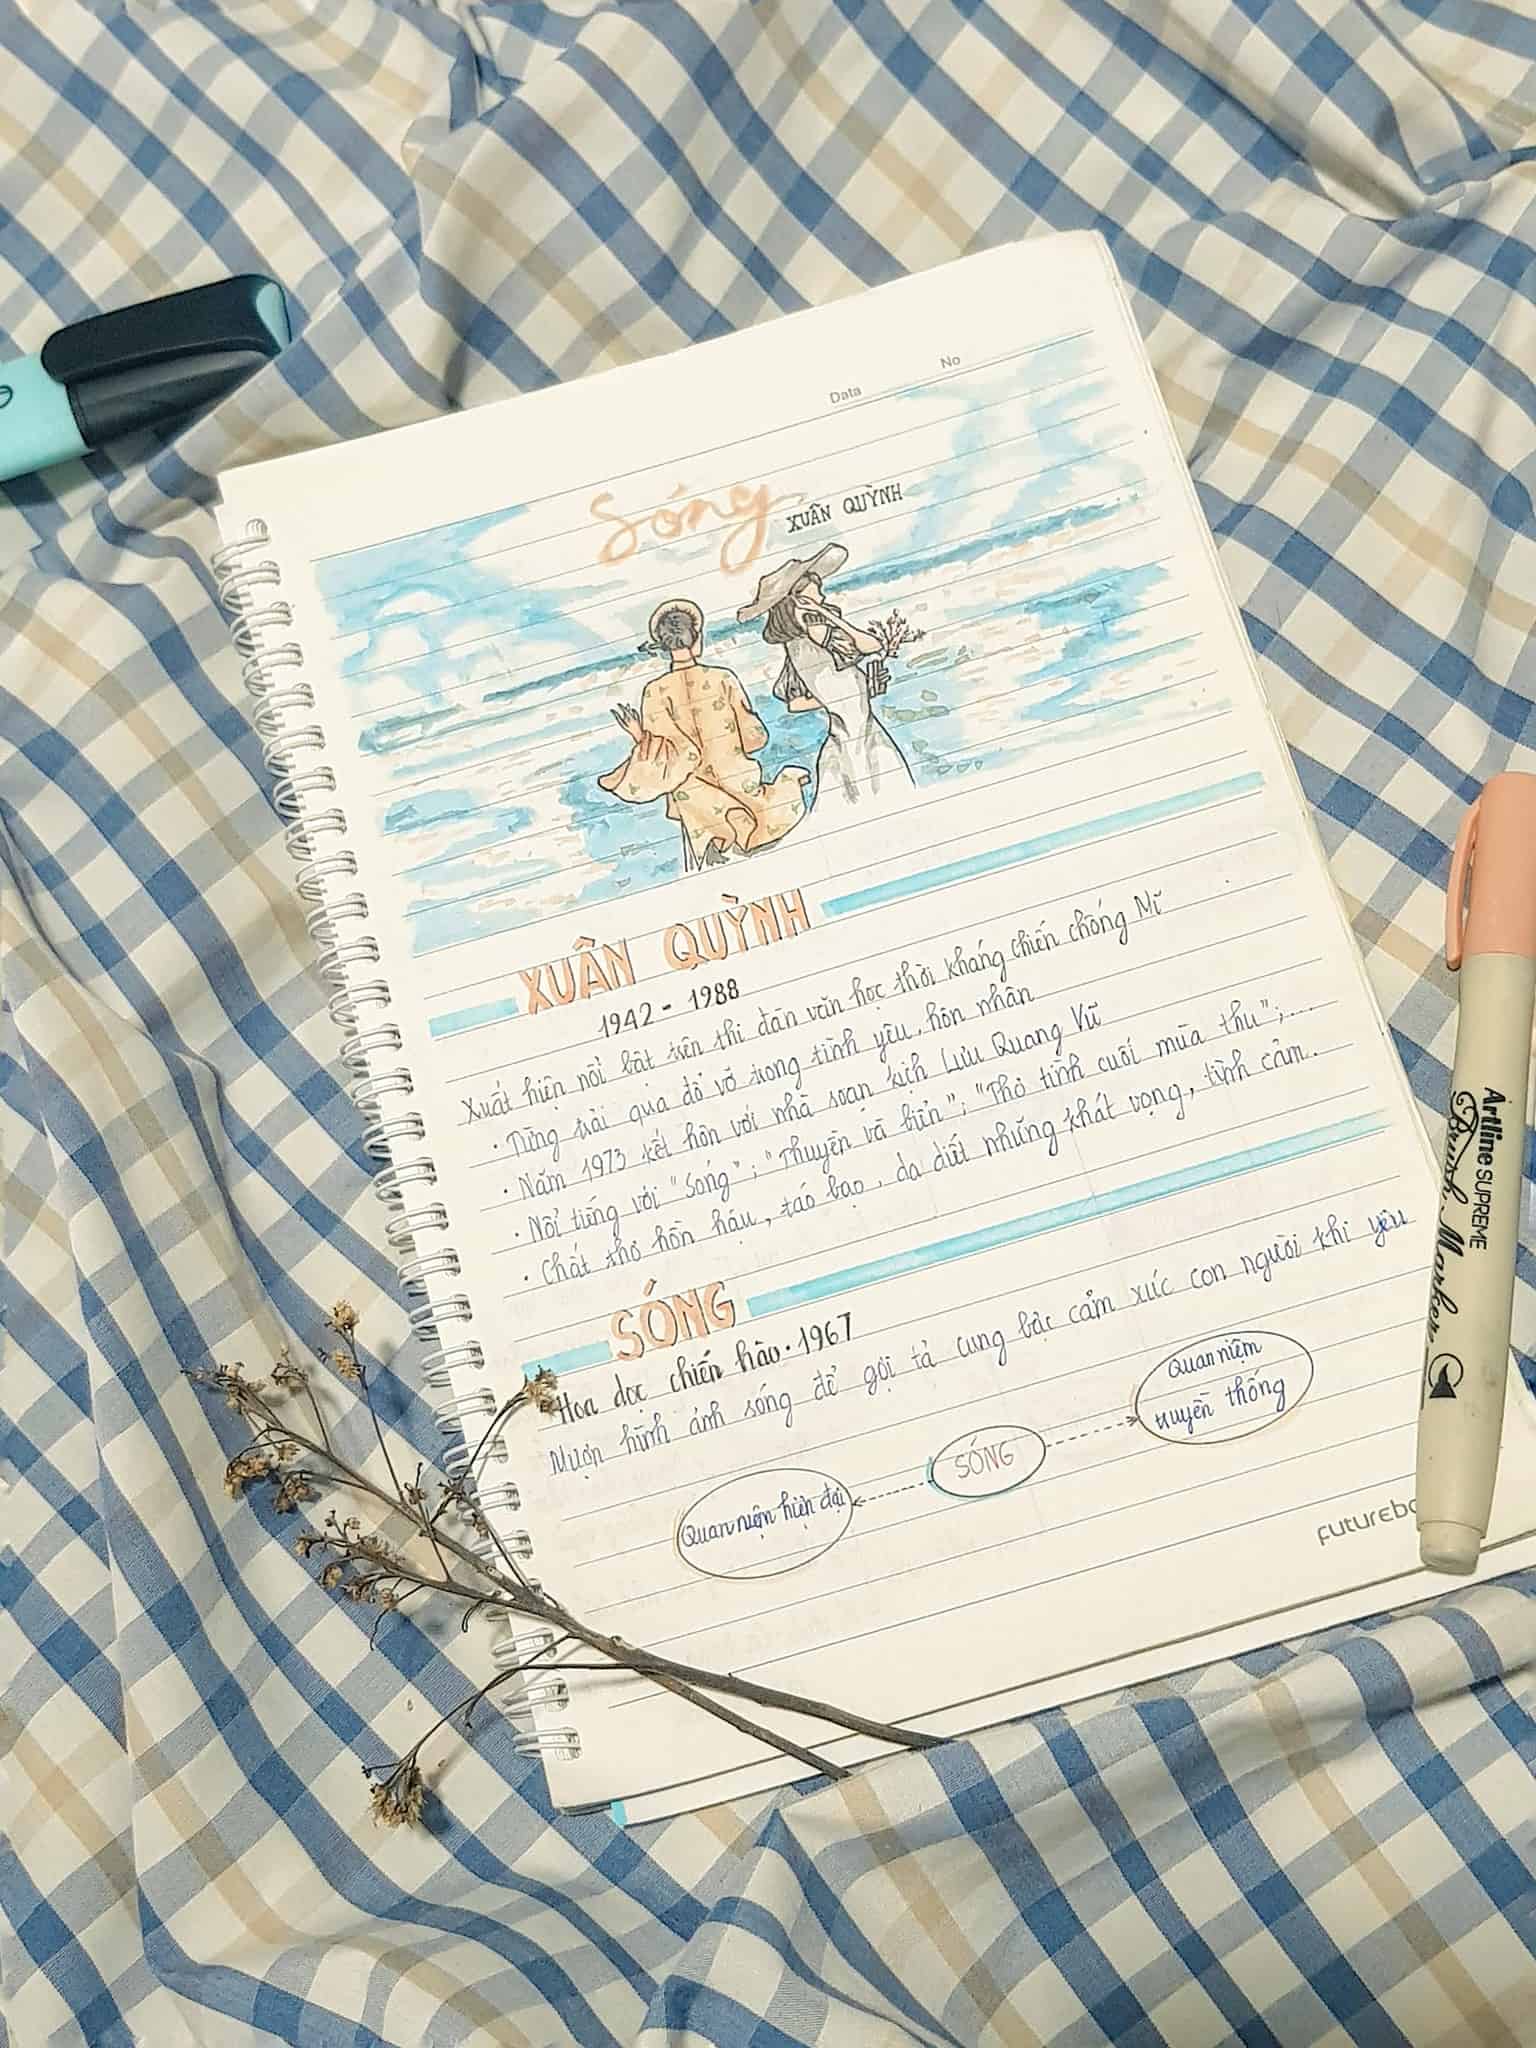 No
Data
Sóng
XUÂN QUỲNH
XUÂN QUỲNH
1942 - 1988
Xuất hiện nổi bật trên thi đàn văn học thời kháng chiến chống Mĩ
• Từng trải qua đổ vỡ trong tình yêu, hôn nhân
• Năm 1973 kết hôn với nhà soạn kịch Lưu Quang Vũ
• Nổi tiếng với "Sóng"; "Thuyền và biển"; "Thơ tình cuối mùa thu";...
• Chất thơ hồn hậu, táo bạo, da diết những khát vọng, tình cảm.
SÓNG
Hoa dọc chiến hào • 1967
Mượn hình ảnh sóng để gợi tả cung bậc cảm xúc con người khi yêu
Quan niệm
truyền thống
SÓNG
Quan niệm hiện đại
Artline SUPREME
Brush Marker